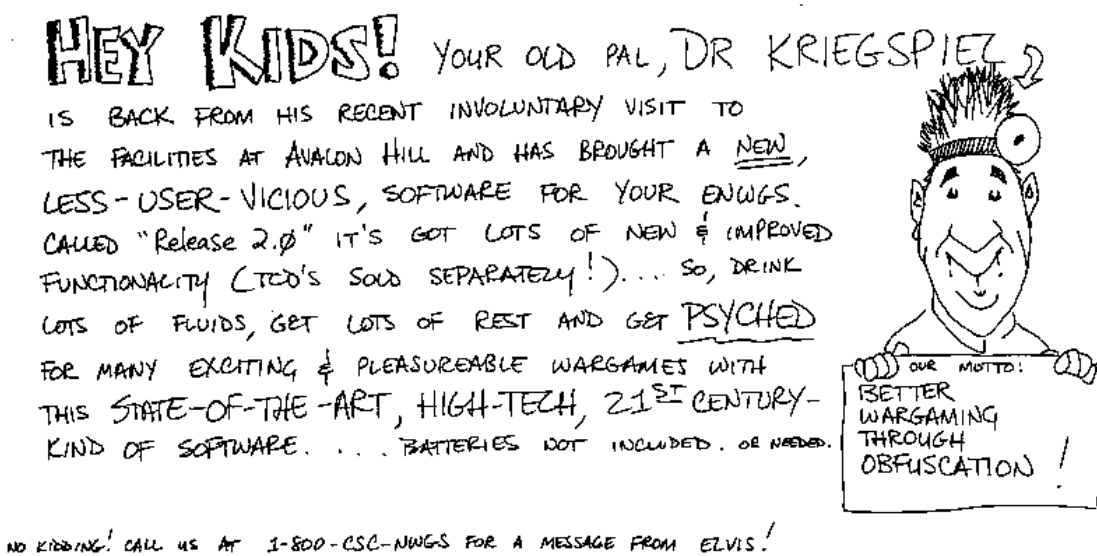 HEY KIDS! YOUR OLD PAL, DR KRIEGSPIEL
IS BACK FROM HIS RECENT INVOLUNTARY VISIT TO
THE FACILITIES AT AVALON HILL AND HAS BROUGHT A NEW,
LESS-USER-VICIOUS, SOFTWARE FOR YOUR ENWGS.
CALLED "Release 2.0" IT'S GOT LOTS OF NEW & IMPROVED
FUNCTIONALITY (TCD'S SOLD SEPARATELY!).... SO, DRINK
LOTS OF FLUIDS, GET LOTS OF REST AND GET PSYCHED
FOR MANY EXCITING & PLEASUREABLE WARGAMES WITH
THIS STATE-OF-THE-ART, HIGH-TECH, 21ST CENTURY-
KIND OF SOFTWARE. . . . BATTERIES NOT INCLUDED. OR NEEDED.
OUR MOTTO:
BETTER
WARGAMING
THROUGH
OBFUSCATION!
NO KIDDING! CALL US AT 1-800-CSC-NWGS FOR A MESSAGE FROM ELVIS!